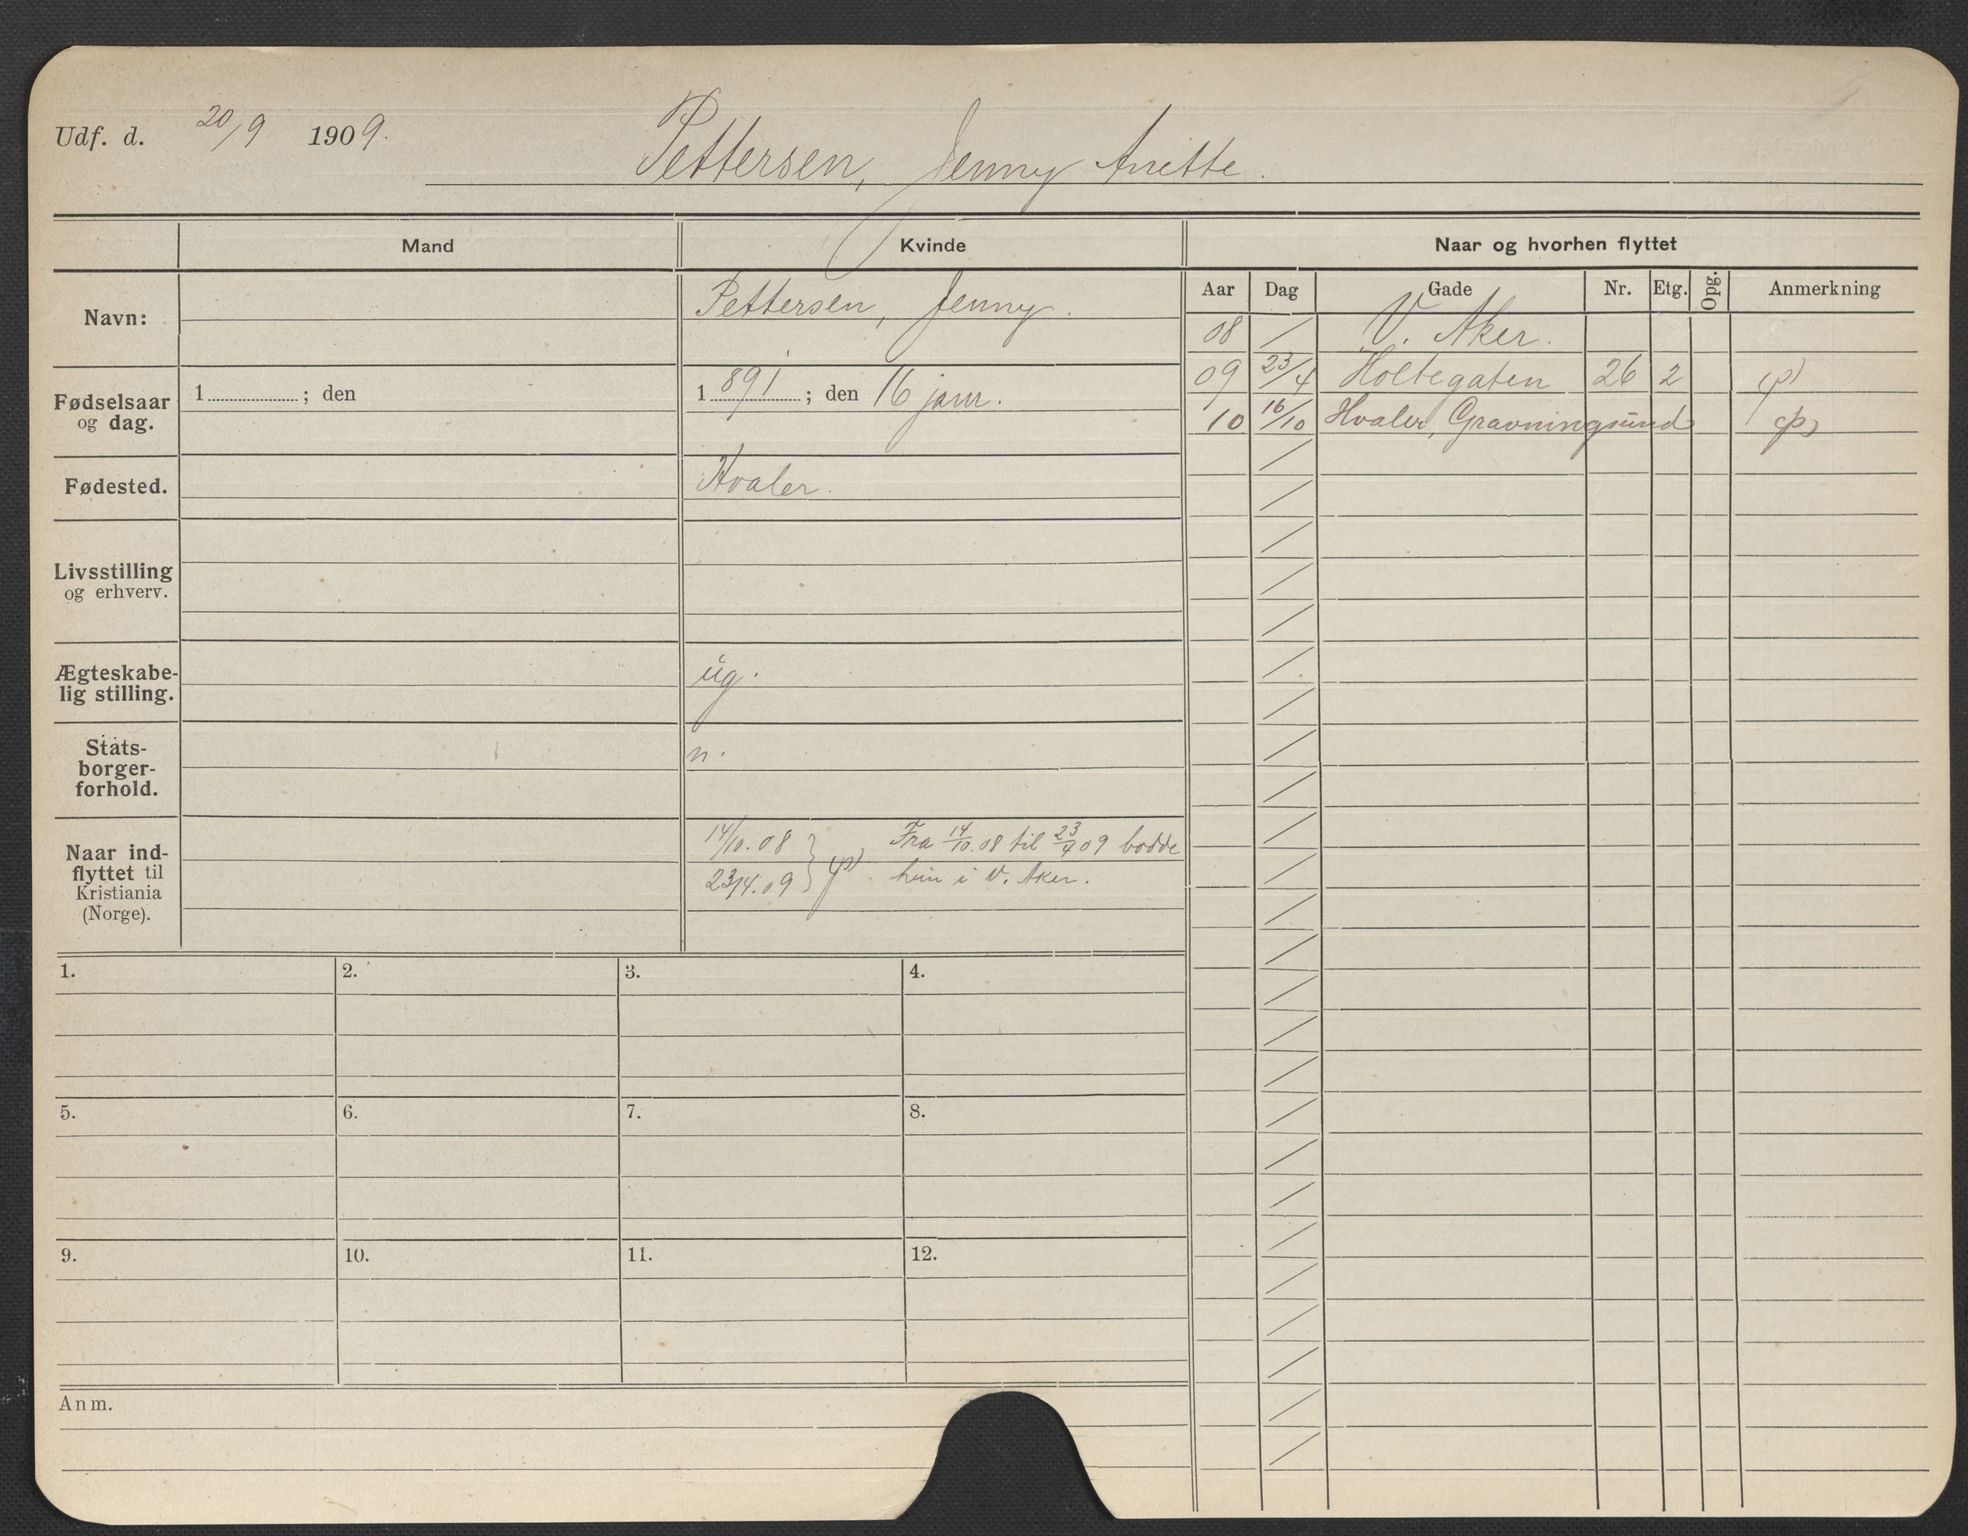 Udf. d. 20/9 1909. Pettersen, Jenny Anitte.
Mand Kvinde Naar og hvorhen flyttet
Aar Dag Gade Nr. Etg. Opg. Anmerkning
Navn: Pettersen, Jenny.
08 V. Aker.
09 23/4 Holtegaten 26 2 (p)
10 16/10 Hvaler, Gravningsund (p)
Fødselsaar
og dag.
1 ; den
1891 ; den 16 janr.
Fødested. Hvaler.
Livsstilling
og erhverv.
Ægteskabe-
lig stilling.
ug.
Stats-
borger-
forhold.
n.
Naar ind-
flyttet til
Kristiania
(Norge).
14/10.08 } (p) Fra 14/10.08 til 23/4 09 bodde
23/4.09 hun i V. Aker.
1. 2. 3. 4.
5. 6. 7. 8.
9. 10. 11. 12.
Anm.